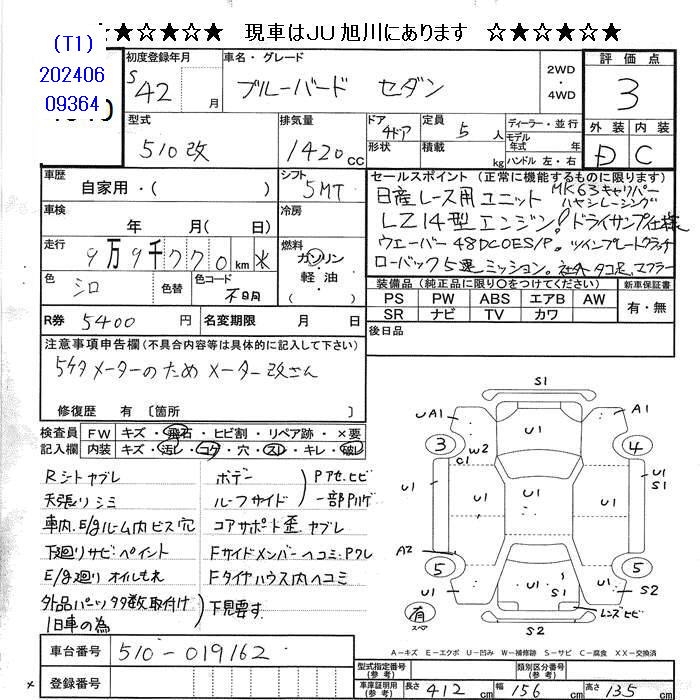 ☆★☆★☆ 現車はJU旭川にあります ☆★☆★☆★
(T1)
202406
09364
初度登録年月
S42 月
車名・グレード
ブルーバード セダン
2WD
・
4WD
評価点
3
型式
510改
排気量
1420cc
ドア 4ドア
形状
定員 5人
積載 kg
ディーラー・並行
モデル年式 年式
ハンドル 左・右
外装 内装
D C
車歴
自家用・( )
シフト
5MT
車検
年 月( 日)
冷房
走行
9万9千770km
燃料
ガソリン
軽・油
色
シロ
色替
色コード
不明
R券 5400円
名変期限 月 日
セールスポイント (正常に機能するものに限ります)
日産レース用ユニット MK63キャリパー
ハヤシレーシング
LZ14型エンジン! ドライサンプ仕様
ウエーバー48DCOES/P。ツインプレートクラッチ
ローバック5速ミッション。社外タコ足、マフラー
装備品(純正品に限り○をつけてください)
新車保証書
PS PW ABS エアB AW
SR ナビ TV カワ
有・無
後日品
注意事項申告欄(不具合内容等は具体的に記入して下さい)
5ケタメーターのためメーター改ざん
修復歴 有 〔箇所 〕
検査員記入欄
FW キズ・飛石・ヒビ割・リペア跡・×要
内装 キズ・汚レ・コゲ・穴・スレ・キレ・破レ
Rシートヤブレ
天張りシミ
車内、E/gルーム内ビス穴
下廻りサビペイント
E/g廻りオイルもれ
外品パーツ多数取付け
旧車の為
ボデー
ルーフサイド
Pアセヒビ
一部Pハゲ
コアサポート歪、ヤブレ
FサイドメンバーヘコミPワレ
Fタイヤハウス内ヘコミ
下見要す
S1
UA1
U1
A1
3
4
W2
C1
U1
U1
U1
U1
S1
A2
5
5
U1
U1
S1
U1
S2
有
スペア
レンズヒビ
S2
A－キズ E－エクボ U－凹み W－補修跡 S－サビ C－腐食 XX－交換済
車台番号
510-019162
登録番号
型式指定番号(参考)
類別区分番号(参考)
車庫証明用(参考)
長さ 412cm
幅 156cm
高さ 135cm